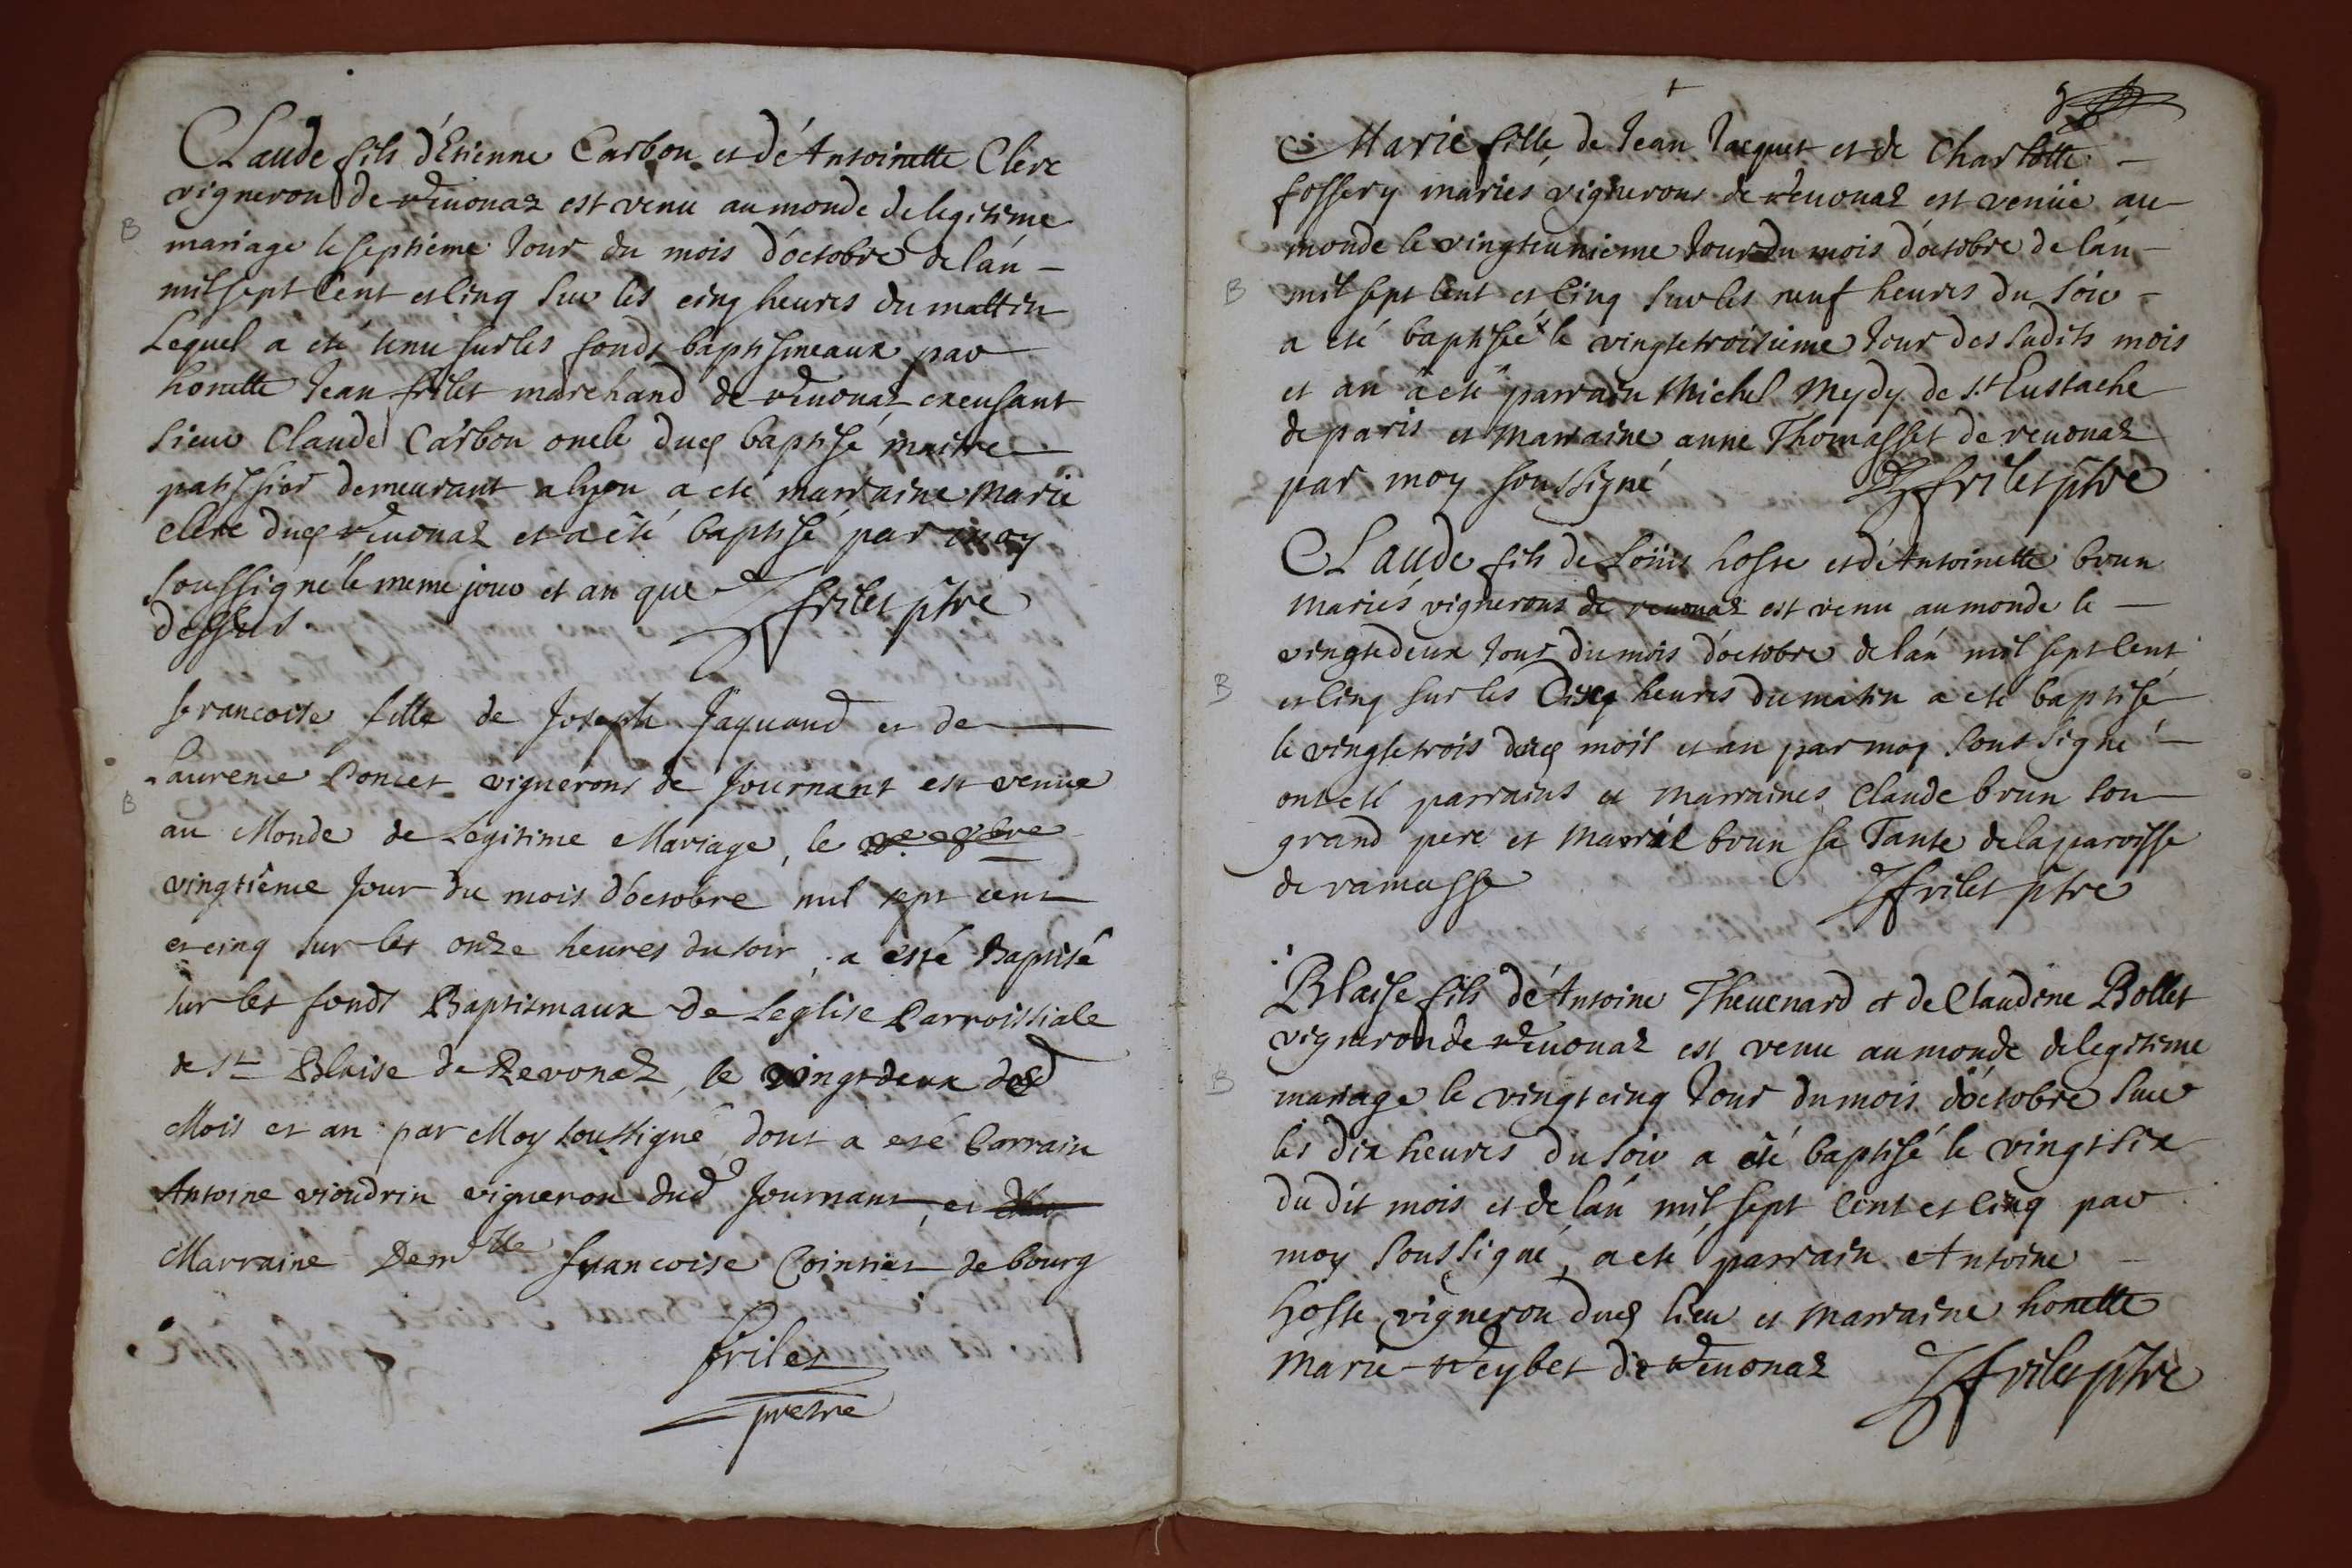 Claude fils d'Etienne Carbon et d'Antoinette Clere
vigneron de revonaz est venu au monde de legitime
B
mariage le septieme Jour du mois d'octobre de l'an
mil sept cent et cinq sur les cinq heures du mattin
Lequel a eté tenu sur les fonds baptismeaux par
honette Jean frilet marchand de revonaz excusant
sieur Claude Carbon oncle dud baptisé maitre
patissier demeurant a lyon a eté marraine Marie
Clere dud revonaz et a eté baptisé par moy
soussigné le meme jour et an que
dessus. frilet ptre
francoise fille de Joseph Jaquand et de
Laurence Poncet vignerons de Journant est venue
B
au Monde de Legitime Mariage, le
vingtiême Jour du mois d'octobre mil sept cent
et cinq sur les onze heures du soir, a esté Baptisé
sur les fonds Baptismaux de Leglise Parroissiale
de St Blaise de Revonaz, le vingt deux dud
Mois et an par Moy soussigné dont a esté Parrain
Antoine vioudrin vigneron dud Journant, et
Marraine Demlle francoise Cointier de bourg
frilet
prestre
9
Marie fille de Jean Jacquet et de Charlotte
fossery mariés vignerons de revonaz est venüe au
monde le vingtiunieme Jour du mois d'octobre de l'an
B
mil sept cent et cinq sur les neuf heures du soir
a eté baptisée le vingtetroisieme Jour des sudits mois
et an a eté parrain Michel Meydy de St Eustache
de paris et Marraine anne Thomasset de revonaz
par moy soussigné frilet ptre
Claude fils de Loüis hoste et d'Antoinette brun
Mariés vignerons de revonaz est venu au monde le
vingtedeux Jour du mois d'octobre de l'an mil sept cent
B
et cinq sur les Cinq heures du matin a eté baptisé
le vingtetrois dud mois et an par moy soussigné
ont eté parrains et marraines Claude brun son
grand pere et brun sa Tante de la paroisse
de ramasse frilet ptre
Blaise fils d'Antoine Thevenard et de Claudine Bollet
vigneron de revonaz est venu au monde de legitime
B
mariage le vingt cinq Jour du mois d'octobre sur
les dix heures du soir a eté baptisé le vingt six
du dit mois et de l'an mil sept cent et cinq par
moy soussigné, a eté parrain Antoine
hoste vigneron dud lieu et marraine honette
Marie reybet de revonaz frilet ptre